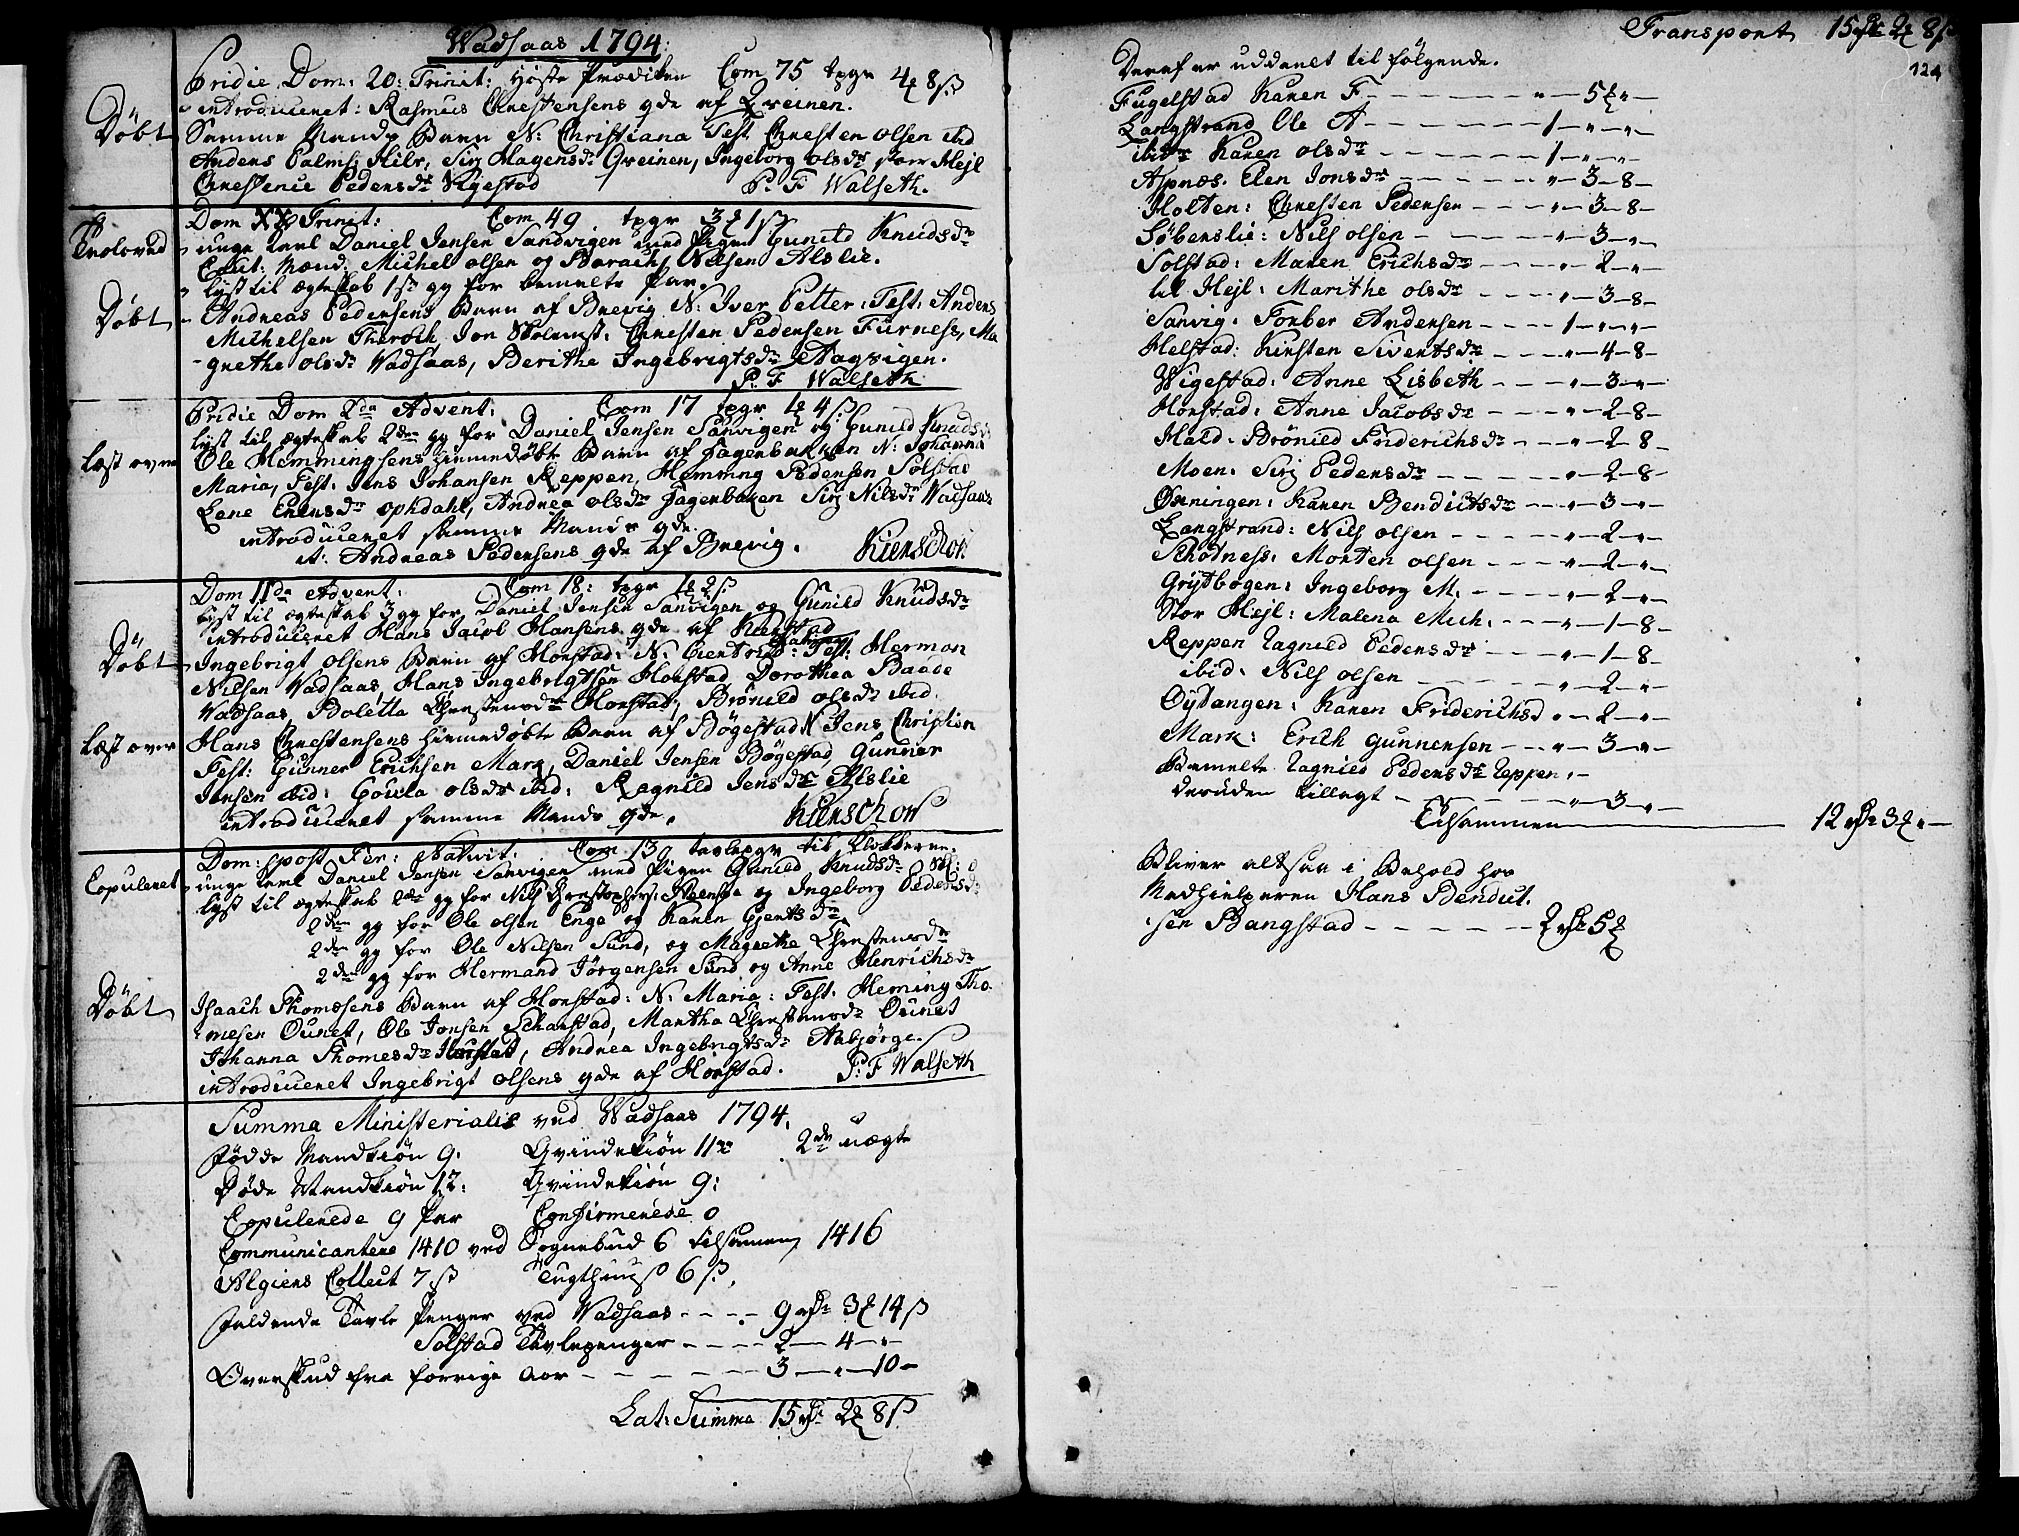 Wadsaas 1794.
Pridie Dom: 20: Trinit: Høste Prædiken Com 75 tpgr 4 8 ß
introduceret: Rasmus Christensens qde af Greinen.
Døbt Samme Mands Barn N: Christiana Test Christen olsen ibd
Anders Palms: Hilr, Siri Hagensdr Greinen, Ingeborg olsdr stor Hejl
Christence Pedersdr Vigestad P: F Walseth.
Dom XX Trinit: Com 49 tpgr 3 1 ß
Troloved unge karl Daniel Jensen Sandvigen med Pigen Gunild Knudsdr
Caut: Mænd: Michel olsen og Barach Nilsen Alslie.
lyst til ægteskab 1ste gg for bemelte Par.
Døbt Andreas Pedersens Barn af Brevig N: Iver Petter: Test: Anders
Michelsen Jon Christen Pedersen Furness, Ma
grethe olsdr Wadsaas, Berithe Ingebrigtsdr Aagvigen.
P: F Walseth
Pridie Dom 2da Advent: Com 17 tpgr 1 4 ß
lyst til ægteskab 2den gg for Daniel Jensen Sanvigen og Gunild Knudsdr
læst over Ole Hemmingsens hiemedøbte Barn af Hagenbakken N: Johanna
Maria, Test: Jens Johansen Reppen, Hemming Pedersen Solstad
Lene opkdahl, Andrea olsdr Hagenbaken Siri Nilsdr Wadsaas
introduceret samme Mands qde.
it: Andreas Pedersens qde af Brevig. Kierschou
Dom Advent: Com 18: tpgr 1 2 ß
lyst til ægteskab 3 gg for Daniel Jensen Sanvigen og Gunild Knudsdr
introduceret Hans Jacob Hansens qde af
Døbt Ingebrigt olsens Barn af Horstad: N: Test: Herman
Nilsen Vadsaas, Hans Ingebrigtsen Horstad, Dorothea Baade
Wadsaas, Boletta Christensdr Horstad, Brønild olsdr ibid.
læst over Hans Christensens hiemedøbte Barn af Bøgestad N Jens Christian
Test: Gunner Erichsen Mark, Daniel Jensen Bøgestad, Gunner
Jensen ibid: olsdr ibid: Ragnild Jensdr Alslie
introduceret samme Mands qde. Kierschou
Dom: post Fer: Nativit: Com 13 tavlepgr til Klokkeren.
Copuleret unge karl Daniel Jensen Sanvigen med Pigen Gunild Knudsdr
lyst til ægteskab 2de gg for Nils og Ingeborg Pedersdr
2den gg for Ole olsen Enge og Karen Gjertsdr
2den gg for Ole Nilsen Sund, og Magrethe Christensdr
2den gg for Hermand Jørgensen Sund og Anne Henrichsdr
Døbt Isaach Thomesens Barn af Horstad: N: Maria: Test: Heming Tho
mesen Ounet, Ole Jonsen Scharstad, Martha Christensdr Ounet
Johanna Thomesdr Horstad, Andrea Ingebrigtsdr Aabjørge.
introduceret Ingebrigt olsens qde af Horstad. P: F Walseth
Summa Ministerialis ved Wadsaas 1794.
fødde Mandkiøn 9. Qvindekiøn 11 2de uægte
Døde Mandkiøn 12: Qvindekiøn 9:
Copulerede 9 Par Confirmerede 0
Communicantere 1410 ved Sognebud 6 tilsammen 1416
Algiers Collect 7 ß Tugthuus 6 ß,
faldende Tavle Penger ved Wadsaas - - - - 9 rdr 3 14 ß
Solstad Tavlepenger - - - - 2 — 4 — " —
Overskud fra forrige Aar - - - - - 3 — " — 10 —
Lat: Summa 15 rdr 2 8 ß
Transport 15 rdr 2 8 ß
124
Deraf er uddeelt til følgende.
Fugelstad Karen F - - - - " — 5 " —
Langstrand Ole A - - - - 1 — " — " —
ibid Karen olsdr - - - - 1 — " — " —
Aspnæs. Elen Jonsdr - - - - " — 3 — 8 —
Holten: Christen Pedersen - - - " — 3 — 8 —
Søberslie: Nils olsen - - - - " — 3 — " —
Solstad: Maren Erichsdr - - - - " — 2 — " —
lil Hejl: Marithe olsdr - - - - " — 3 — 8 —
Sanvig: Torber Andersen - - - - 1 — " — " —
Helstad: Kirsten Sivertsdr - - - " — 4 — 8 —
Wigestad: Anne Lisbeth - - - " — 3 — " —
Horstad: Anne Jacobsdr - - - " — 2 — 8 —
Hald: Brønild Friderichsdr - - - " — 2 — 8 —
Moen: Siri Pedersdr - - - - " — 2 — 8 —
Ønningen: Karen Bendictsdr - - - " — 3 — " —
Langstrand: Nils olsen - - - - " — 2 — " —
Schotness: Morten olsen - - - " — 2 — " —
Grytbogen: Ingeborg M: - - - " — 2 — " —
Stor Hejl: Malena Mich: - - - " — 1 — 8 —
Reppen Ragnild Pedersdr - - - " — 1 — 8 —
ibid: Nils olsen - - - - " — 2 — " —
Øytangen: Karen Friderichsd " — 2 — " —
Mark: Erich gunnersen - - - " — 3 — " —
Bemelte Ragnild Pedersdr Reppen, -
desuden tillagt - - - - " — 3 — " —
Tilsammen 12 rdr 3 " —
Bliver altsaa i Behold hos
Medhielperen Hans Bendict.
sen Bangstad - - - - - - 2 rdr 5